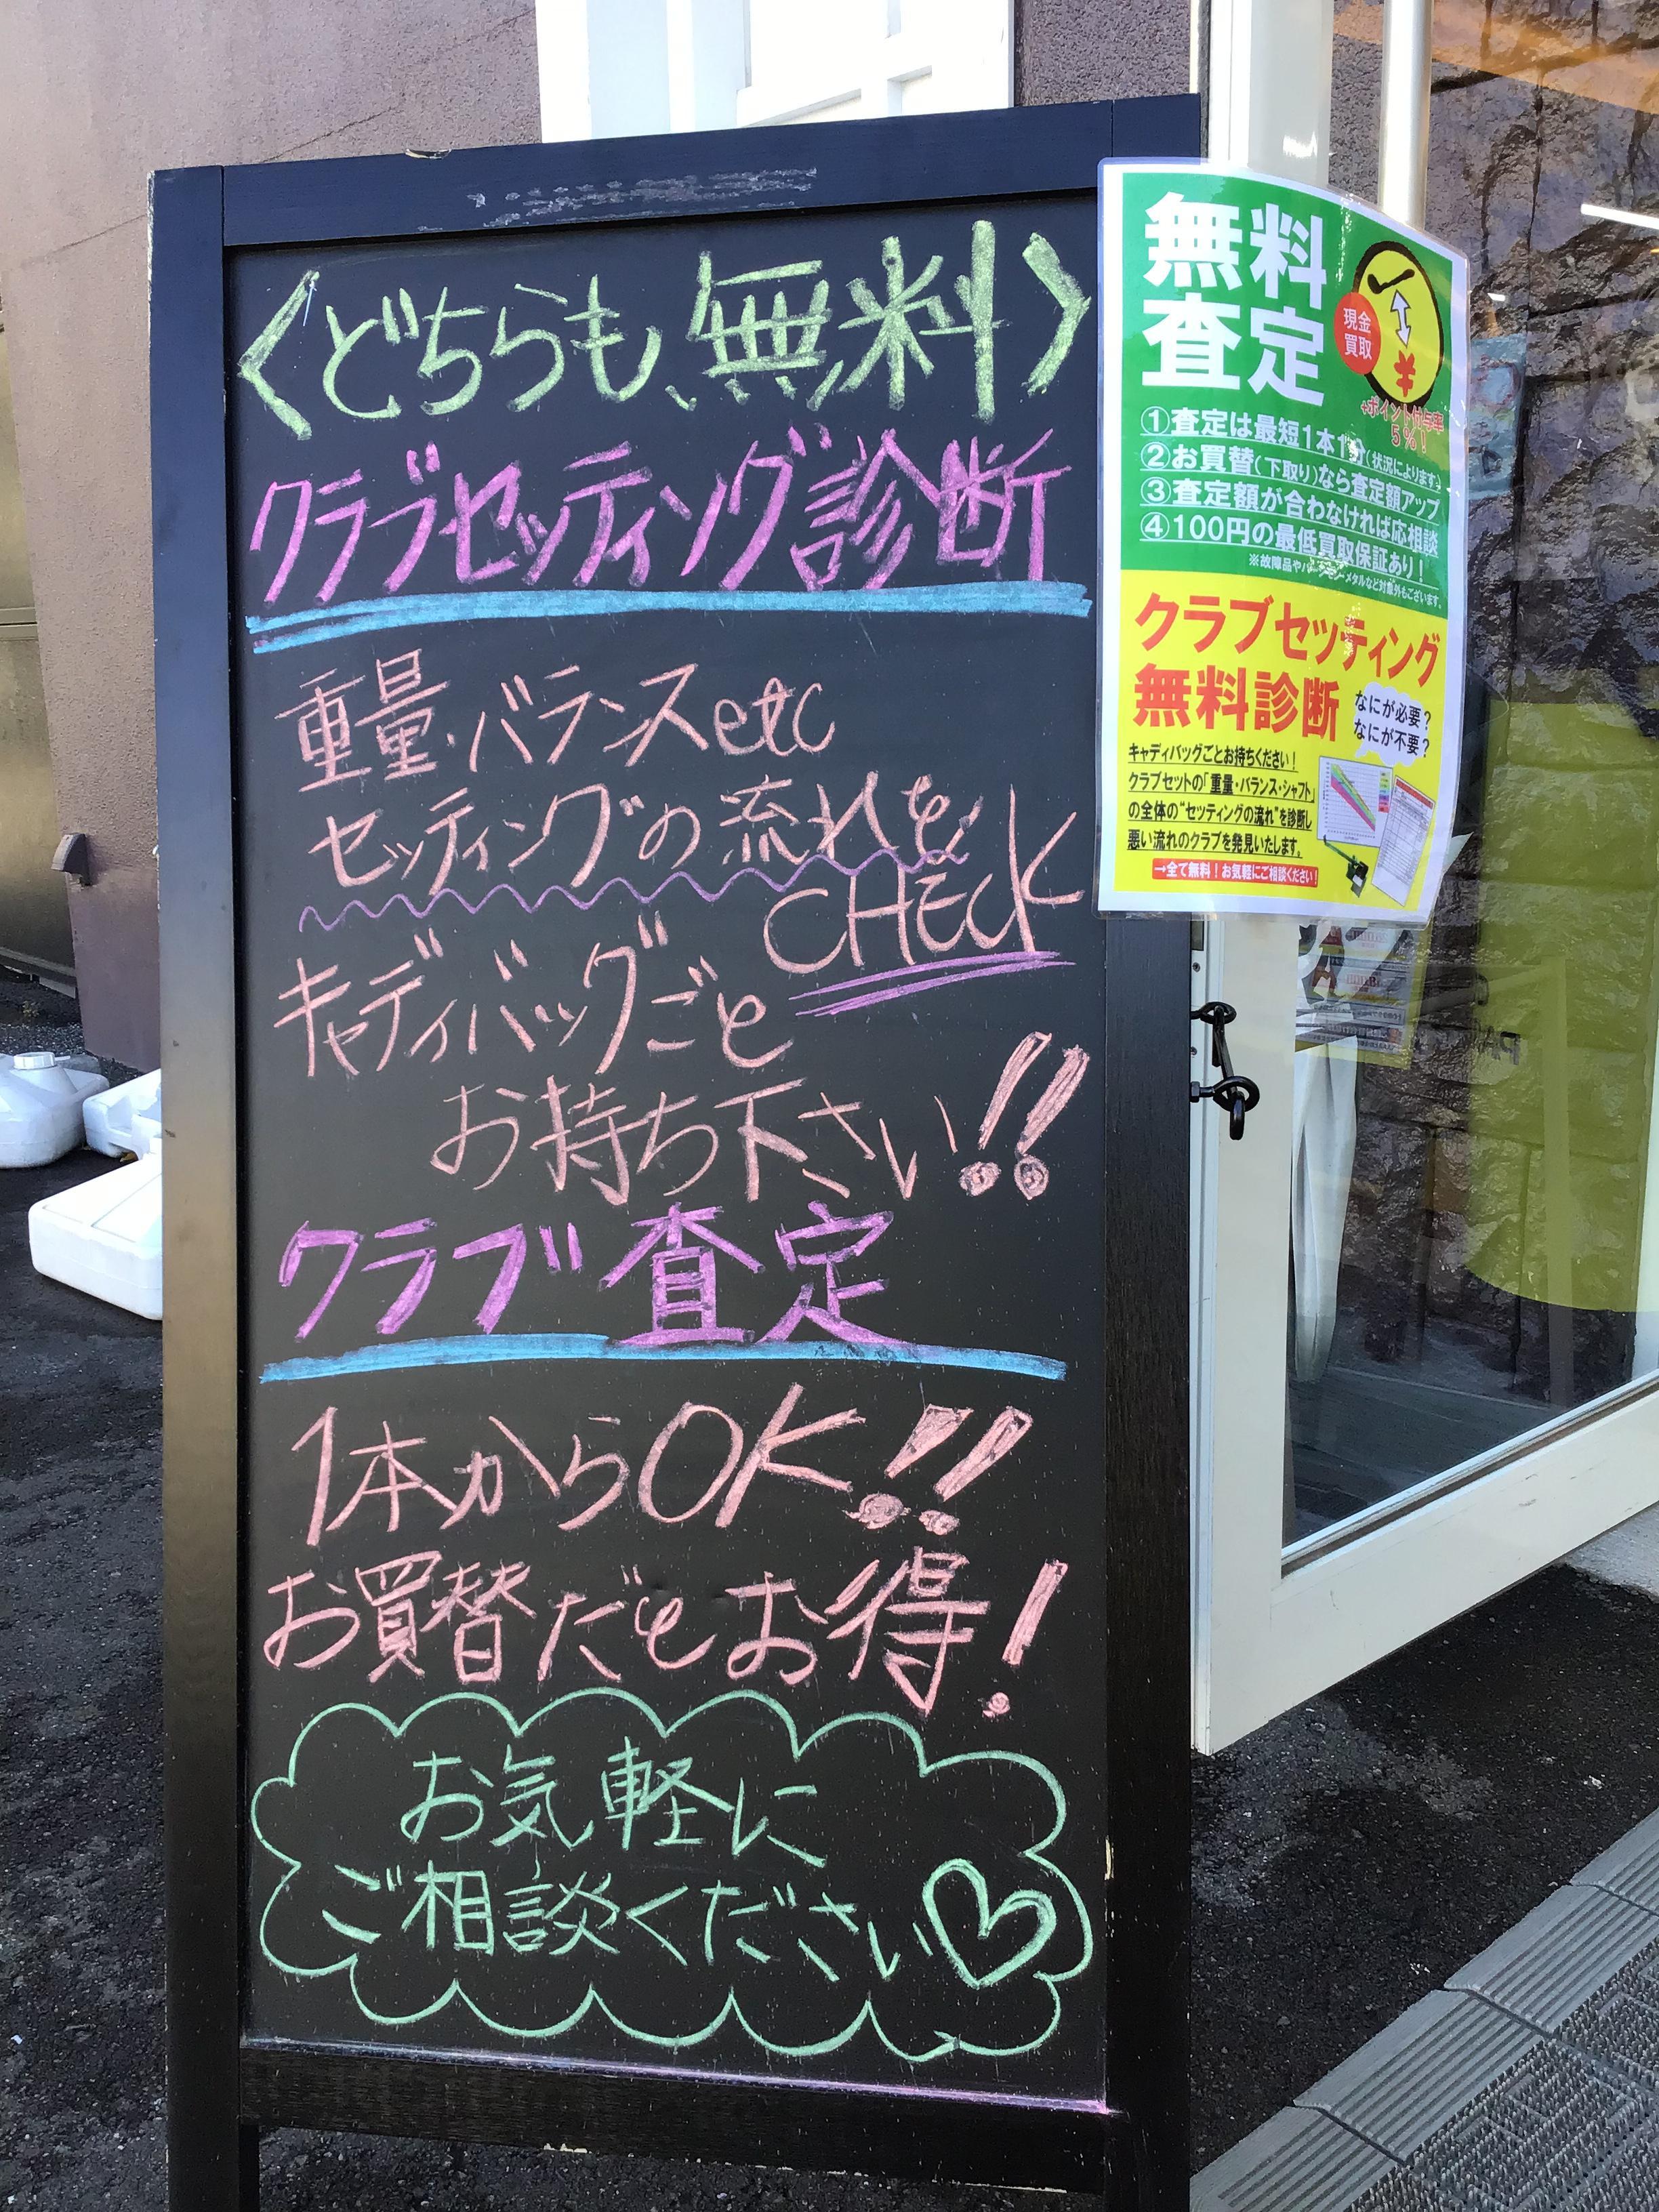 〈どちらも、無料〉
クラブセッティング診断
重量・バランスetc
セッティングの流れを
CHECK
キャディバッグごと
お持ち下さい!!
クラブ査定
1本からOK!!
お買替だとお得!
お気軽に
ご相談ください♡
無料
査定
現金
買取
+ポイント付与率
5%!
①査定は最短1本1分(状況によります)
②お買替(下取り)なら査定額アップ
③査定額が合わなければ応相談
④100円の最低買取保証あり!
クラブセッティング
無料診断
なにが必要?
なにが不要?
キャディバッグごとお持ちください!
クラブセットの「重量・バランス・シャフト」
の全体の"セッティングの流れ"を診断し
悪い流れのクラブを発見いたします。
→全て無料!お気軽にご相談ください!